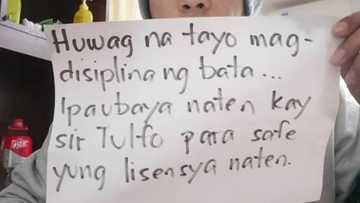 Huwag na tayo mag-
disiplina ng bata...
Ipaubaya naten kay
sir Tulfo para safe
yung lisensya naten.